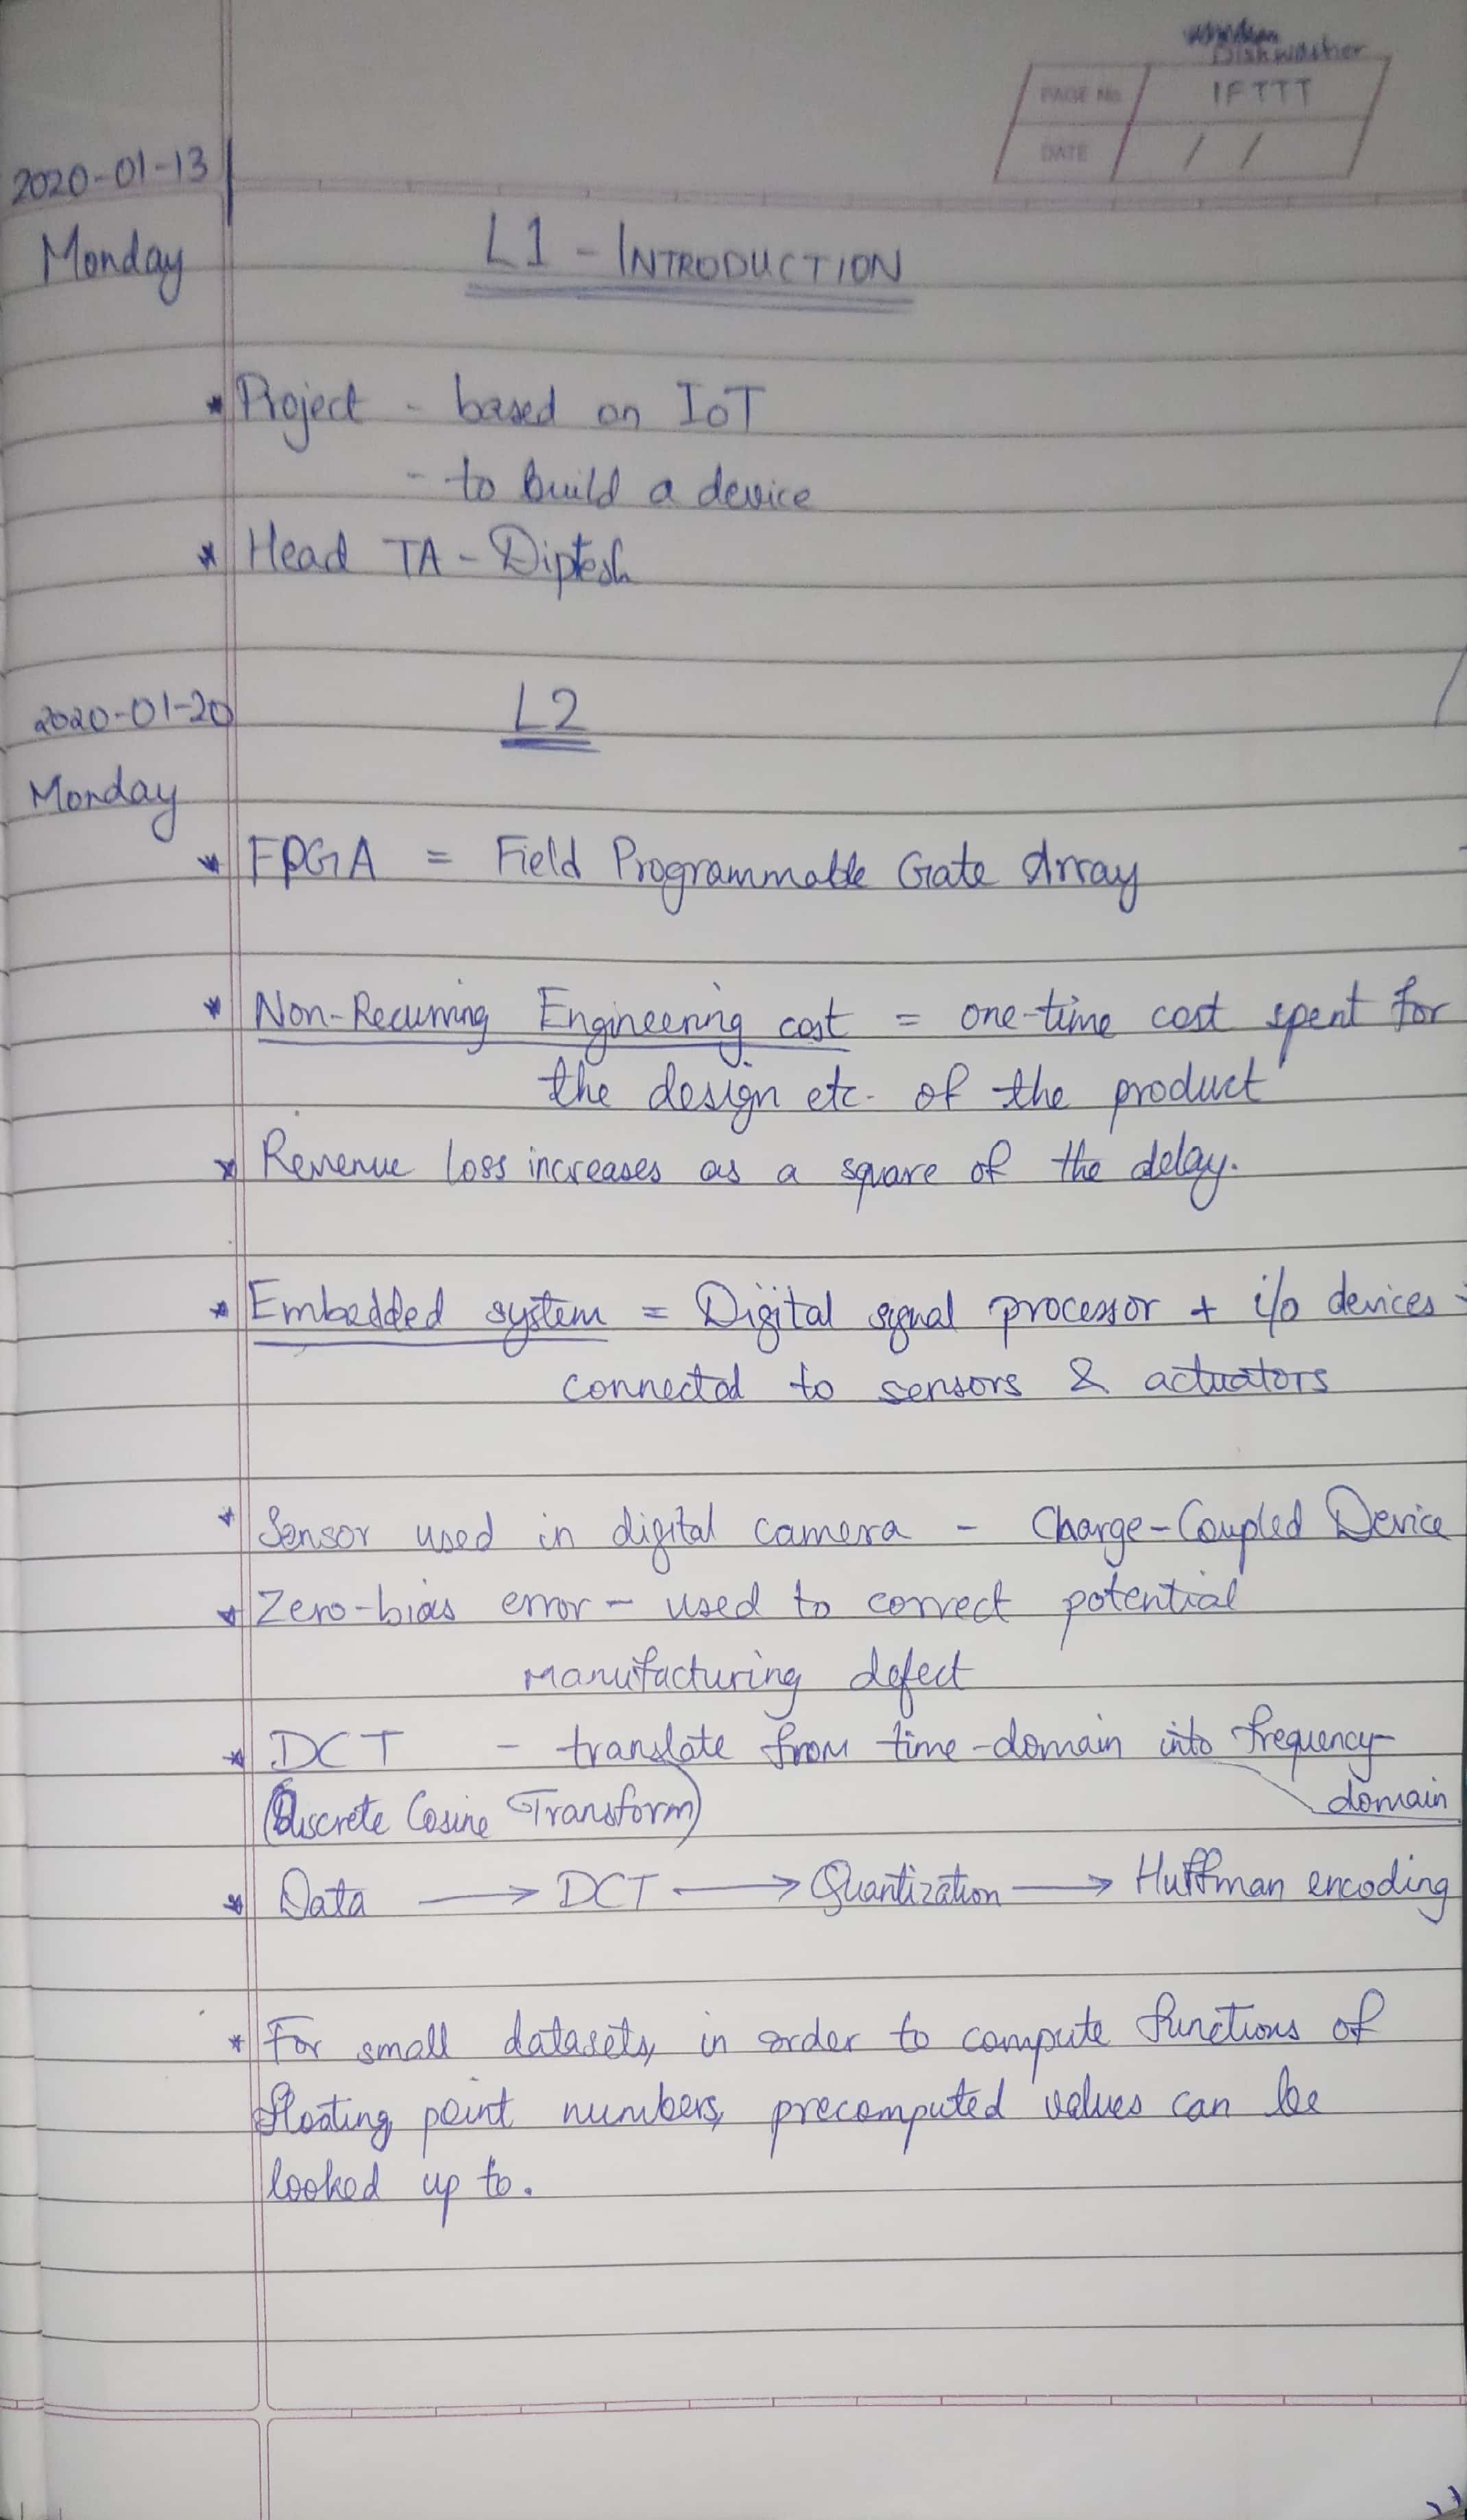 Dishwasher
PAGE No. IFTTT
DATE / /
2020-01-13
Monday
L1 - INTRODUCTION
* Project - based on IoT
- to build a device
* Head TA - Diptesh
2020-01-20
L2
Monday
* FPGA = Field Programmable Gate Array
* Non-Recurring Engineering cost = one-time cost spent for
the design etc. of the product
* Revenue loss increases as a square of the delay.
* Embedded system = Digital signal processor + i/o devices
connected to sensors & actuators
* Sensor used in digital camera - Charge-Coupled Device
* Zero-bias error - used to correct potential
manufacturing defect
* DCT - translate from time-domain into frequency-
(Discrete Cosine Transform) domain
* Data → DCT → Quantization → Huffman encoding
* For small datasets, in order to compute functions of
floating point numbers, precomputed values can be
looked up to.